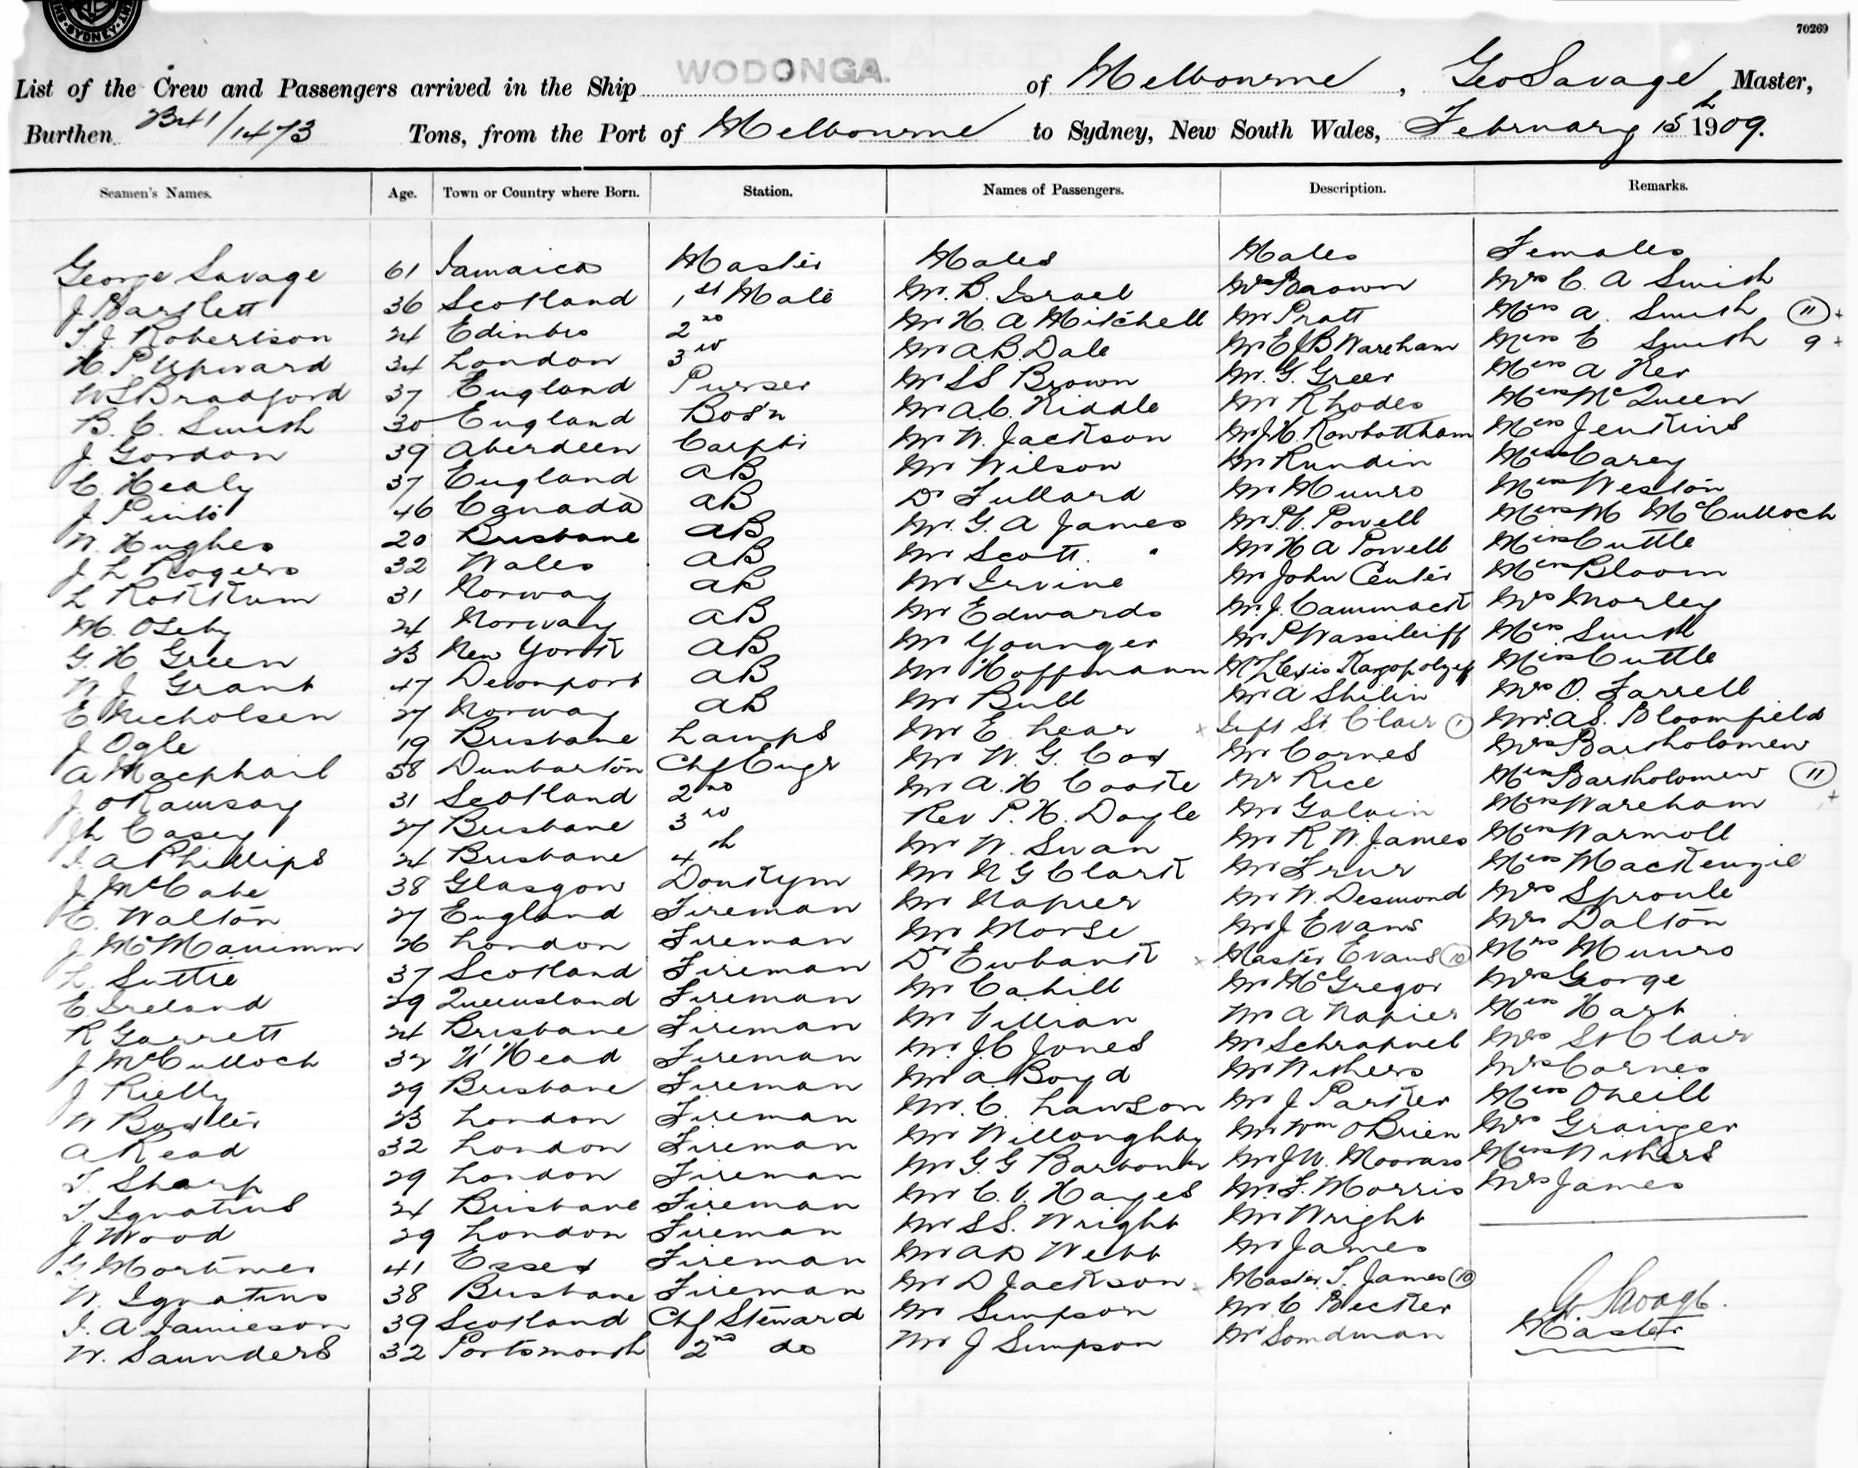 SYDNEY
70269
List of the Crew and Passengers arrived in the Ship WODONGA. of Melbourne, Geo Savage Master,
Burthen 2341/1473 Tons, from the Port of Melbourne to Sydney, New South Wales, February 15th 1909.
Seamen's Names. Age. Town or Country where Born. Station. Names of Passengers. Description. Remarks.
George Savage 61 Jamaica Master Males Males Females
J Bartlett 36 Scotland 1st Mate Mr. B. Israel Mr Brown Mrs C. A Smith
T. J. Robertson 24 Edinbro 2nd Mr H. A Mitchell Mr Pratt Miss A. Smith 11 +
H. P Upward 34 London 3rd Mr A. B. Dale Mr E J B Wareham Miss E Smith 9 +
W S Bradford 37 England Purser Mr S S Brown Mr. G. Greer Miss A Ker
B. C. Smith 30 England Bos'n Mr A. C. Kiddle Mr Rhodes Miss McQueen
J. Gordon 39 Aberdeen Carptr Mr W. Jackson Mr J. H. Rowbottham Miss Jenkins
C Healy 37 England AB Mr Wilson Mr Rundin Miss Carey
J Pinto 46 Canada AB Dr Fullard Mr Munro Miss Weston
W. Hughes 20 Brisbane AB Mr. G. A James Mr P. V. Powell Miss M McCulloch
J. L Rogers 32 Wales AB Mr Scott. Mr H A Powell Miss Cuttle
L Rokkum 31 Norway AB Mr Irvine Mr John Center Miss Bloom
M. Oseby 24 Norway AB Mr Edwards Mr. J. Cammack Mrs Morley
G. H Green 23 New York AB Mr Younger Mr P Wassilieff Miss Smith
W. J. Grant 47 Devonport AB Mr Hoffmann Miss Cuttle
E Nicholsen 27 Norway AB Mr Bull Mr A Shilin Mrs O. Farrell
J Ogle 19 Brisbane Lamps Mr E Lear x St Clair 1 Mrs A S. Bloomfield
A Macphail 38 Dunbarton Chf Engr Mr W. G. Cox Mr Cornes Mrs Bartholomew
J. O Ramsay 31 Scotland 2nd Mr A. H Cooke Mr Rice Miss Bartholomew 11
J L Casey 27 Brisbane 3rd Rev P. H. Doyle Mr Galvin Miss Wareham +
I. A Phillips 24 Brisbane 4th Mr W. Swan Mr R W. James Miss Warmoll
J McCabe 38 Glasgow Donkyn Mr N G Clark Mr Frur Miss MacKenzie
E. Walton 27 England Fireman Mr Napier Mr W. Desmond Mrs Sproule
J McManimm 26 London Fireman Mr Morse Mr J Evans Mrs Dalton
L. Suttie 37 Scotland Fireman Dr Ewbank x Master Evans 10 Mrs Munro
E Ireland 29 Queensland Fireman Mr Cahill Mr McGregor Mrs George
R Garrett 24 Brisbane Fireman Mr Villian Mr A Napier Miss Hart
J McCulloch 32 N' Head Fireman Mr. J. C Jones Mr Schrapnel Mrs St Clair
J Rielly 29 Brisbane Fireman Mr A. Boyd Mr Withers Mrs Cornes
W Butler 23 London Fireman Mr. C. Lawson Mr J Parker Miss Oneill
A Read 32 London Fireman Mr Willoughby Mr Wm O'Brien Mrs Grainger
T. Sharp 29 London Fireman Mr G. G Barbour Mr J W. Miss Withers
T Ignatius 24 Brisbane Fireman Mr C. V. Hayes Mr. F. Morris Mrs James
J Wood 29 London Fireman Mr S S. Wright Mr Wright
G Mortimer 41 Essex Fireman Mr A D Webb Mr James
W. Ignatius 38 Brisbane Fireman Mr D Jackson x Master T. James 10
I. A Jamieson 39 Scotland Chf Steward Mr Simpson Mr. C Becker G. Savage.
W. Saunders 32 Portsmouth 2nd do Mr J Simpson Mr Somdman Master